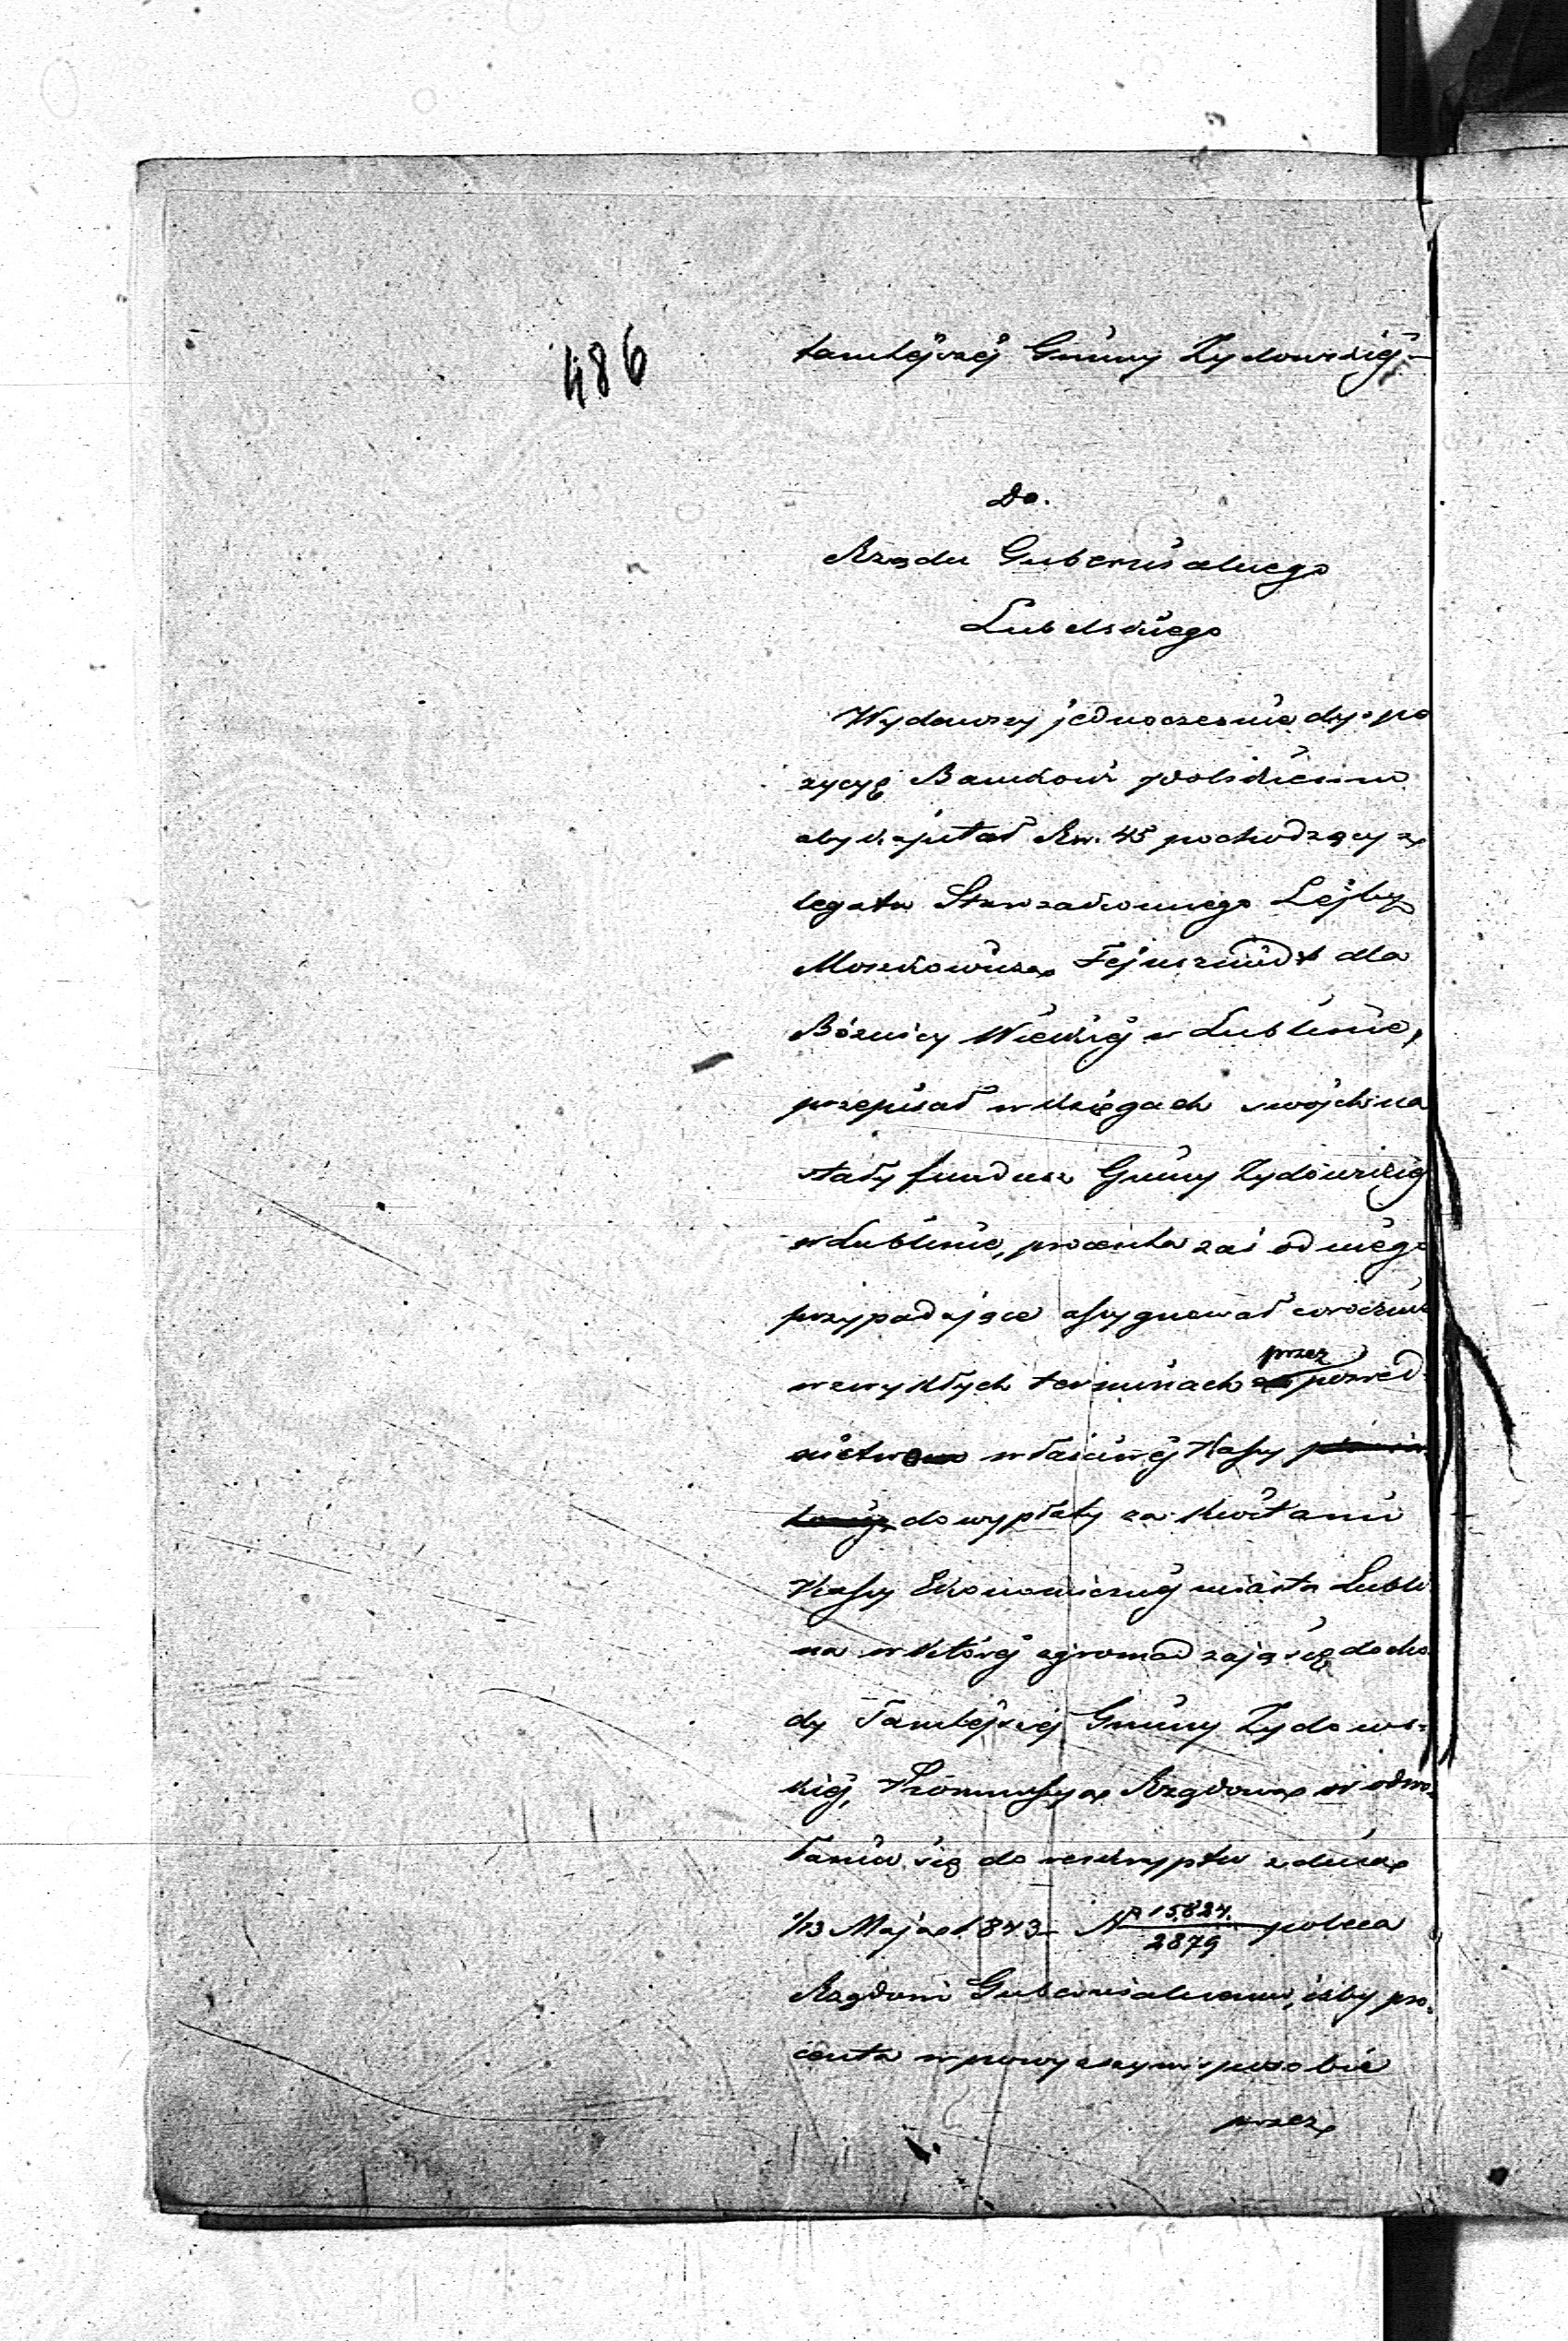 486
tamtéjszéj Gminy Żydowskiéj –
Do.
Rządu Gubernialnego
Lubelskiego
Wydawszy jednocześnie dyspo
zycyę Bankowi Polskiemu
aby kapitał Rsr. 45 pochodzący z
legatu Starozakonnego Lejby
Moszkowicza Fejnszmidt dla
Bóżnicy Wielkiéj w Lublinie,
przepisał w księgach swojch na
stały fundusz Gminy Żydowskiéj
w Lublinie, procenta zaś od niego
przypadające assygnował corocznie
w zwykłych terminach przez pośred
nictwo właściwéj Kassy
do wypłaty za kwitami
Kassy Ekonomicznéj miasta Lubli
na w któréj zgromadzają się docho
dy tamtejszéj Gminy Żydows-
kiéj, Kommissya Rządowa w odwo-
łaniu się do reskryptu z dnia
1/13 Maja 1843 – No 15824./2879 poleca
Rządowi Gubernialnemu, iżby pro-
centa w powyższym sposobie
przez